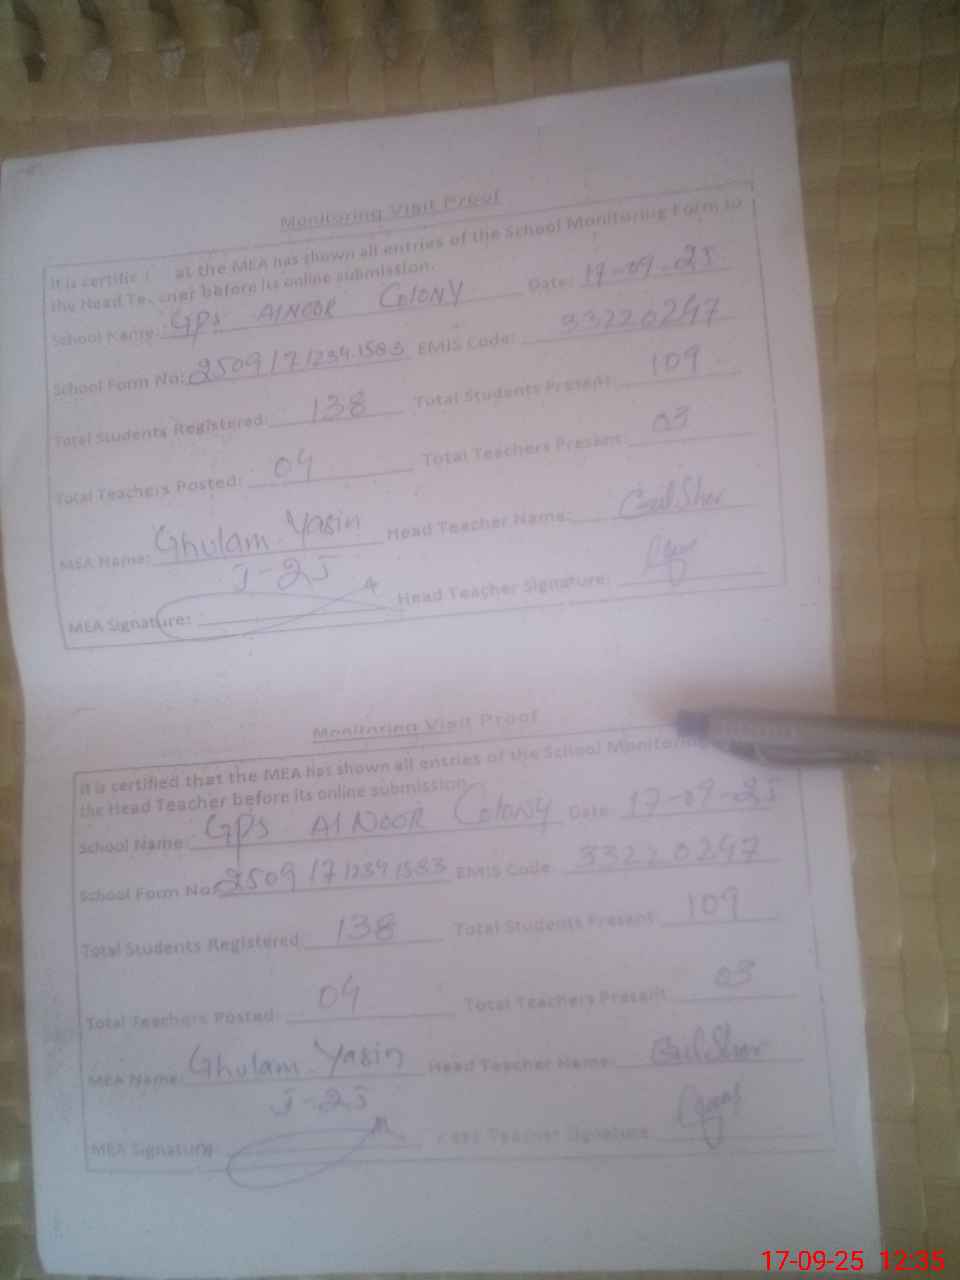 Monitoring Visit Proof
It is certifie at the MEA has shown all entries of the School Monitoring Form to
the Head Te cher before its online submission.
School Name: GPS AlNOOR COlONY Date: 17-09-25
School Form No: 2509171239.1583 EMIS Code: 33220247
Total Students Registered: 138 Total Students Present: 109
Total Teachers Posted: 04 Total Teachers Present: 03
MEA Name: Ghulam Yasin Head Teacher Name: Gul Sher
J-25
MEA Signature: Head Teacher Signature:
Monitoring Visit Proof
It is certified that the MEA has shown all entries of the School Monitoring
the Head Teacher before its online submission.
School Name: GPS Al NOOR COlONY Date: 17-09-25
School Form No: 25091712391583 EMIS Code: 33220247
Total Students Registered: 138 Total Students Present: 109
Total Teachers Posted: 04 Total Teachers Present: 03
MEA Name: Ghulam Yasin Head Teacher Name: Gul Sher
J-25
MEA Signature: Head Teacher Signature:
17-09-25 12:35